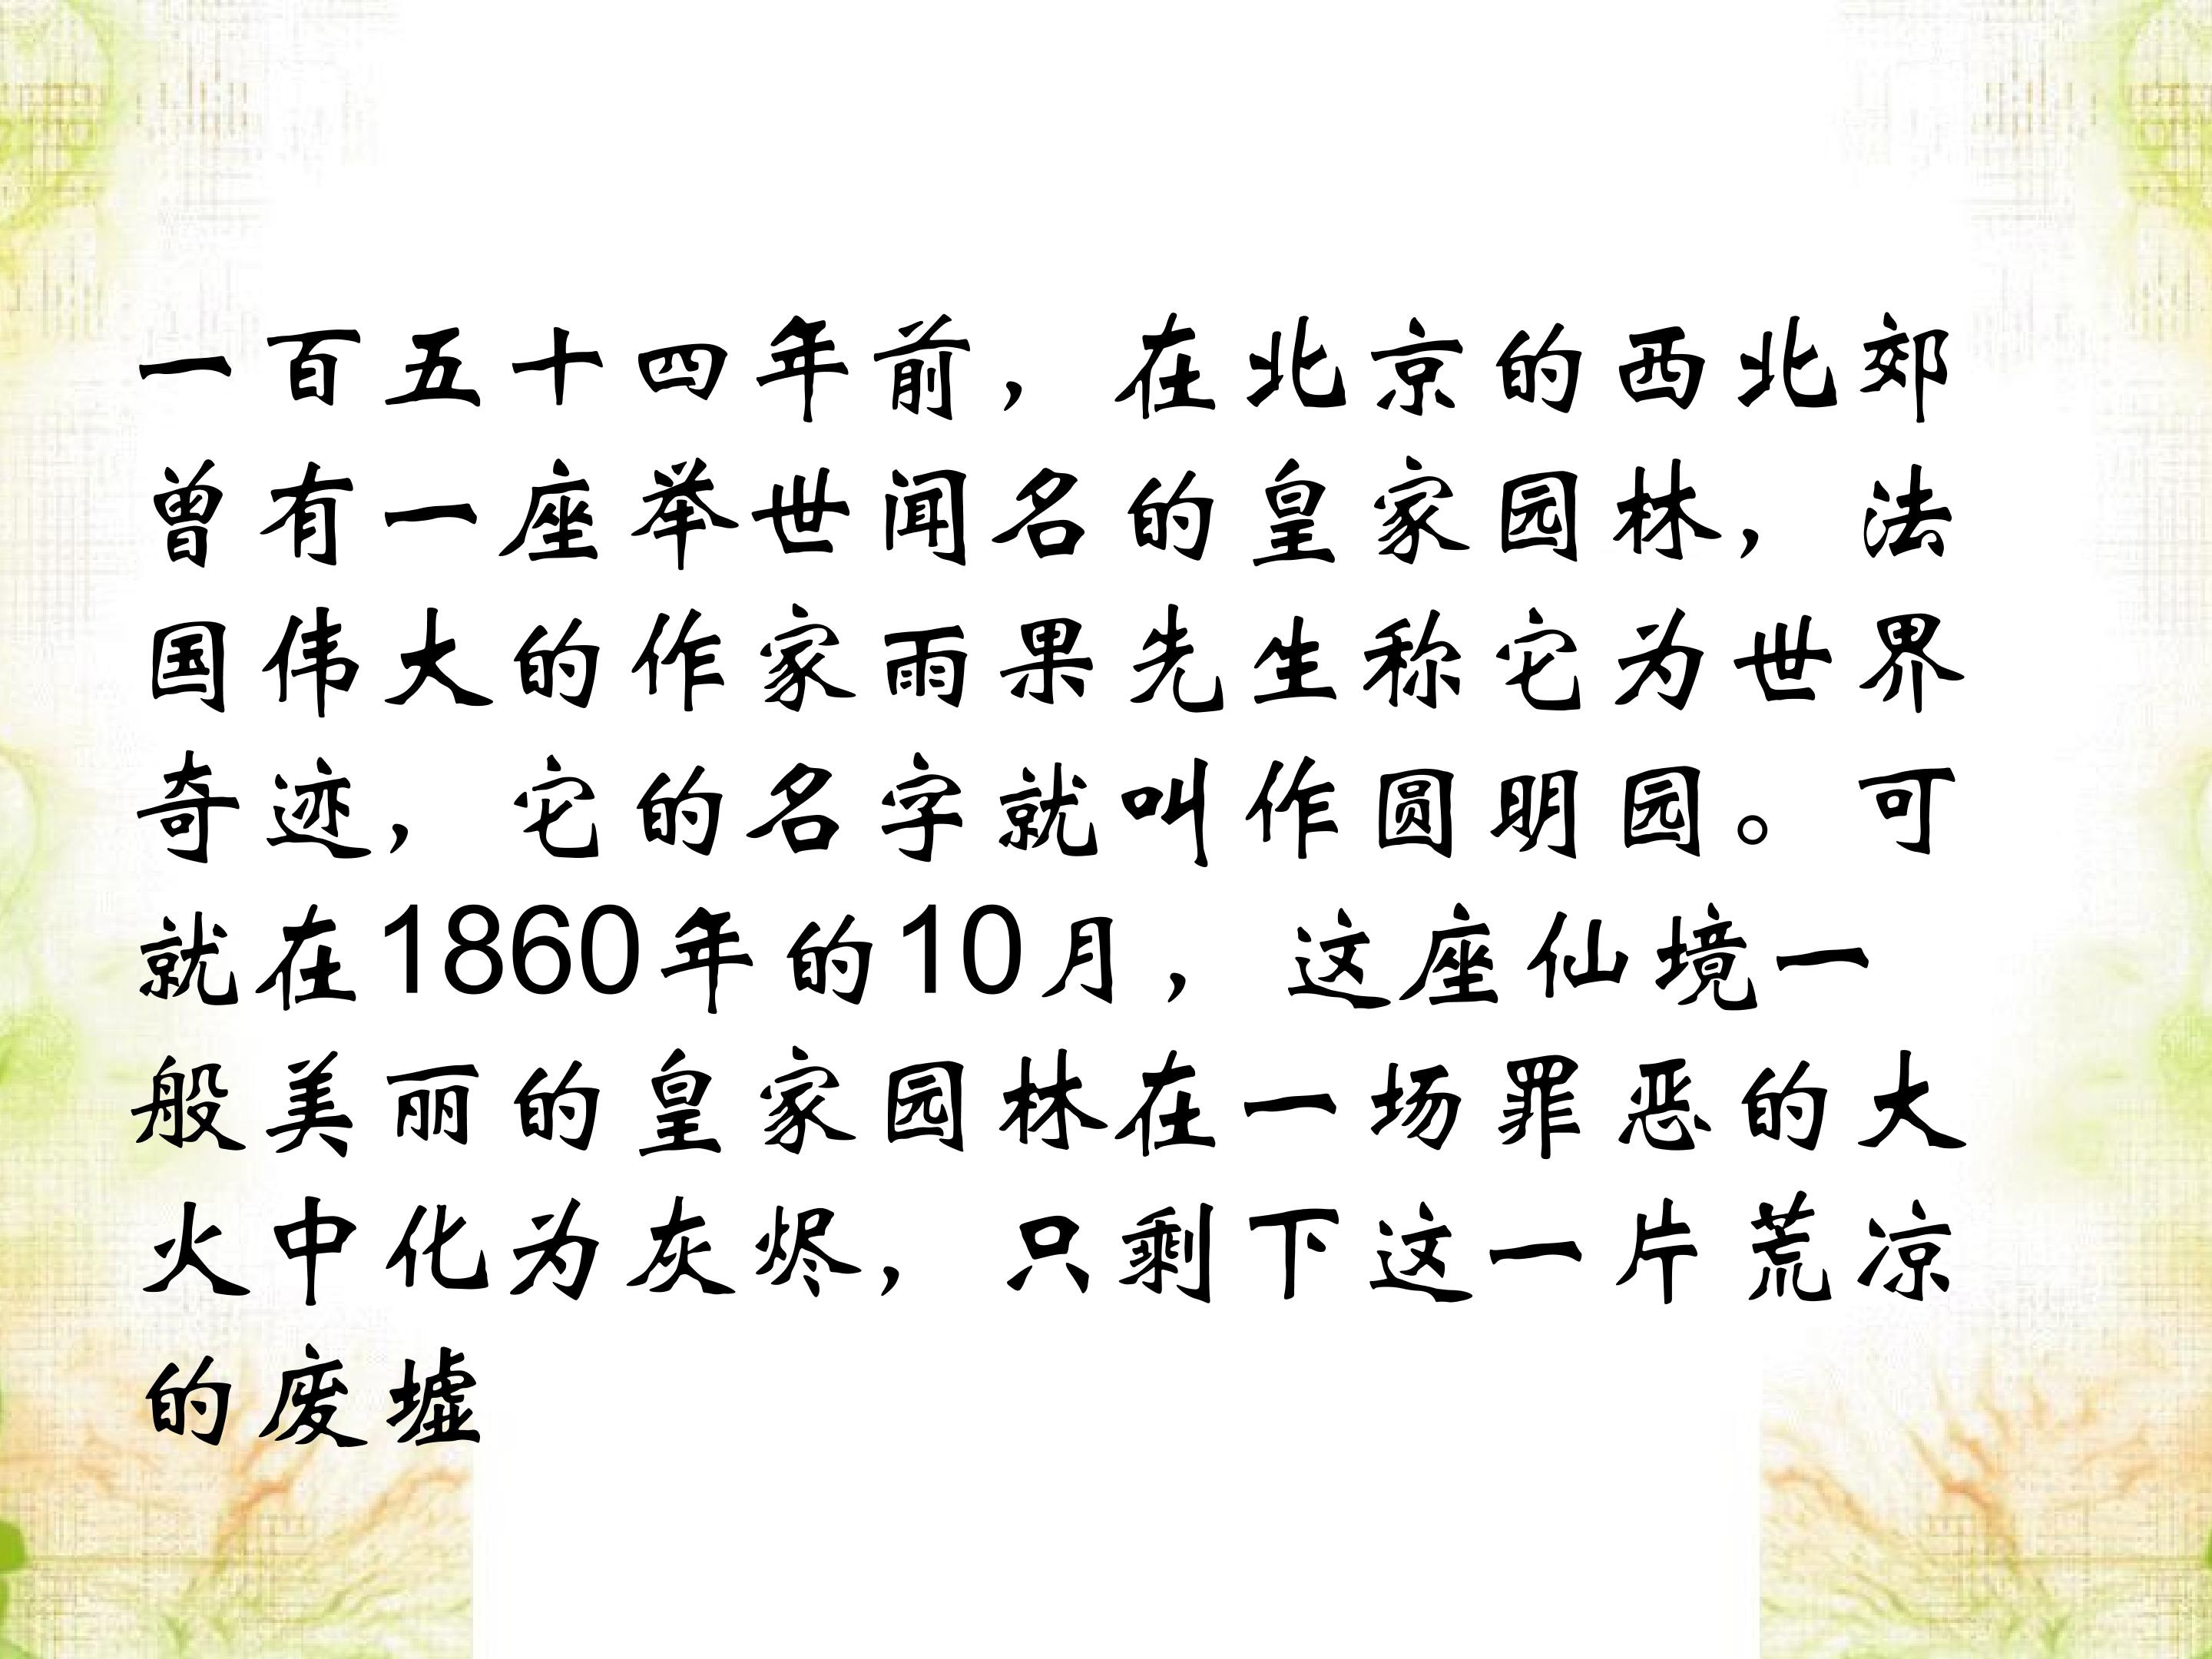 一百五十四年前，在北京的西北郊
曾有一座举世闻名的皇家园林，法
国伟大的作家雨果先生称它为世界
奇迹，它的名字就叫作圆明园。可
就在1860年的10月，这座仙境一
般美丽的皇家园林在一场罪恶的大
火中化为灰烬，只剩下这一片荒凉
的废墟